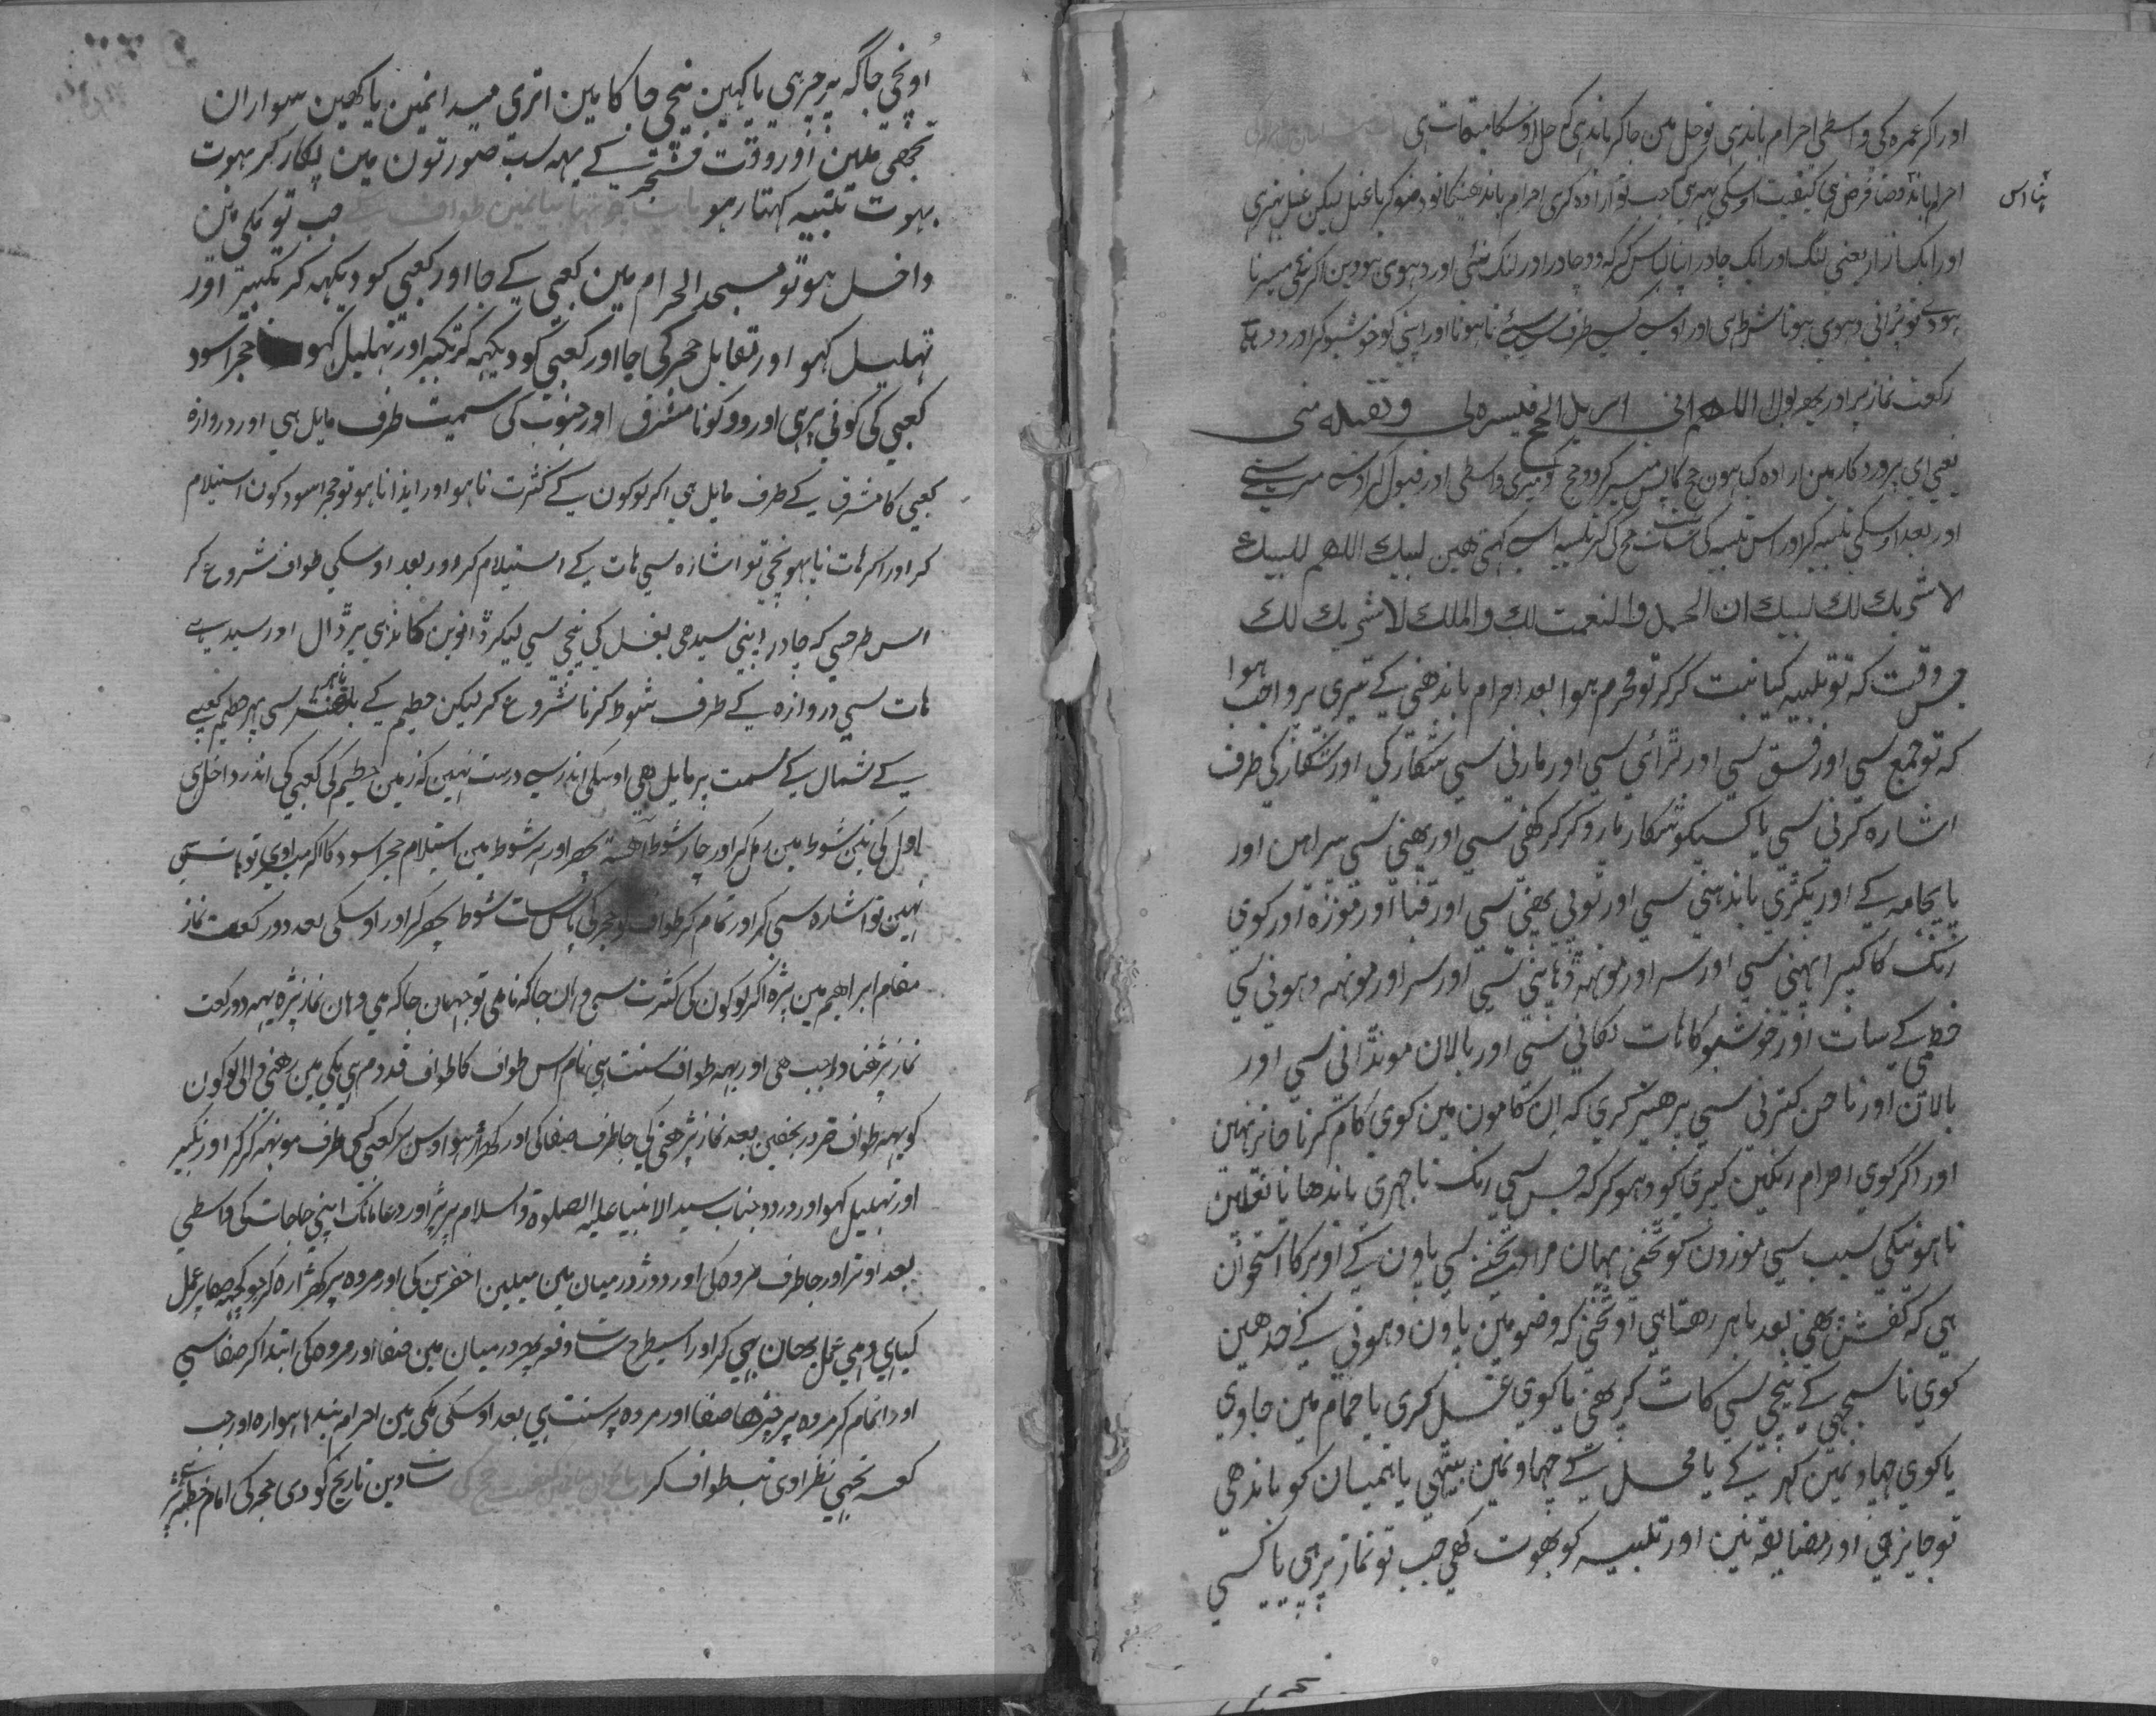 اور اکر عمره کی واسطی احرام باندهی تو حل مین جا کر باندی که حل اوسکا میقات هی
احرام باندهنا فرض هی کیفیت اوسکی یهه هی جب تو اراده کری احرام باندهنیکا تو وضو کر یا غسل لیکن غسل بهتر هی
پنا اس
اور ایک ازار یعنی لنک اور ایک چادر اپنا لباس کر که وو چادر اور لنک نئی اور دهوی هووین اکر نئی میسر نا
هووی تو پرانی دهوی هونا شرط هی اور اوسی کسی طرف سی نا هونا اور اپنی کو خوشبو کر اور دو
رکعت نماز پر اور پهر بول اللهم انی ارید الحج فیسره لی وتقبله منی
یعنی ای پروردکار مین اراده کیا هون حج کا پس میسر کر وو حج کو میری واسطی اور قبول کر اوسی مرسی
اور بعد اوسکی تلبیه کر اور اس تلبیه کی سات حج کی کر تلبیه اسی کهتی هین لبیك اللهم لبیك
لا شریك لك لبیك ان الحمد والنعمت لك والملك لا شریك لك
جس وقت که تو تلبیه کیا نیت کر کر تو محرم هوا بعد احرام باندهنی کے تیری پر واجب هوا
که تو جمع سی اور فسق سی اور لڑائی سی اور مارنی سی شکار کی اور شکار کی طرف
اشاره کرنی سی یا کسیکو شکار مارو کر کر کهنی سی اور پهنی سی پیراهن اور
پایجامه کے اور پکڑی باندهنی سی اور ٹوپی پهنی سی اور قبا اور موزه اور کوی
رنک کا کپڑا پهنی سی اور سر اور مونهه ڈهاپنی سی اور سر اور مونهه دهونی سی
خطمی کے سات اور خوشبو کا هات لکانی سی اور بالان مونڈانی سی اور
بالان اور ناخن کترنی سی پرهیز کری که ان کامون مین کوی کام کرنا جائز نهین
اور اکر کوی احرام رنکین کپڑی کو دهو کر که جس سی رنک نا جهڑی باندها یا نعلین
نا هونیکی سبب سی موزون کو ٹخنی یهان مراد ٹخنے سی پاون کے اوپر کا استخوان
هی که کفش پهنی بعد باهر رهتا هی او ٹخنی که وضو مین پاون دهونی کے حد هین
کوی نا سمجهی کے نیچی سی کاٹ کر پهنی یا کوی غسل کری یا حمام مین جاوی
یا کوی چهاونمین کهر کے یا محمل کے چهاونمین بیٹهی یا همیان کو باندهی
تو جایز هی اور مضایقه نین اور تلبیه کو بهوت کهی جب تو نماز پڑهی یا کسی
اونچی جاکه پر چڑهی یا کهین نیچی جاکا مین اتری میدانمین یا کهین سواران
تجهی ملین اور وقت فجر کے یهه سب صورتون مین پکار کر بهوت
بهوت تلبیه کهتا رهو جب تو مکی مین
داخل هو تو مسجد الحرام مین کعبی کے جا اور کعبی کو دیکهه کر تکبیر اور
تهلیل کهو اور مقابل حجر کی جا اور کعبی کو دیکهه کر تکبیر اور تهلیل کهو حجر اسود
کعبی کی کونی پر هی اور وو کونا مشرق اور جنوب کی سمیت طرف مایل هی اور دروازه
کعبی کا مشرق کے طرف مایل هی اکر لوکون کے کثرت نا هو اور ایذا نا هو تو حجر اسود کون استیلام
کر اور اکر هات نا پهونچی تو اشاره سی هات کے استیلام کر اور بعد اوسکی طواف شروع کر
اس طرح سی که چادر اپنی سیدهی بغل کی نیچی سی لیکر ڈاوین کاندی پر ڈال اور سیدهے
هات سی دروازه کے طرف شوط کرنا شروع کر لیکن حطیم کے باهر سی پهر حطیم کعبے
کے شمال کے سمت پر مایل هی اوسکی اندر سی درست نهین که زمین حطیم کی کعبی کی اندر داخل هی
اول کی تین شوط مین رمل کر اور چار شوط آهسته پهر اور هر شوط مین استیلام حجر اسود کا اکر میسر اوی تو هات سی
نهین تو اشاره سی کر اور تمام کر طواف کو حجر کی پاس سات شوط پهر کر اور اوسکی بعد دو رکعت نماز
مقام ابراهیم مین پڑه اکر لوکون کی کثرت سی وان جاکه نا ملی تو جهان جاکه ملی وهان نماز پڑه یهه دو رکعت
نماز پڑهنا واجب هی اور یهه طواف سنت هی نام اس طواف کا طواف قدوم هی مکی مین رهنی والی لوکون
کو یهه طواف ضرور نهین بعد نماز پڑهنی کی جا طرف صفا کی اور کهڑا هو اوس پر کعبی کی طرف مونهه کر کر اور تکبیر
اور تهلیل کهو اور درود جناب سید الانبیا علیه الصلوة والسلام پر پڑ اور دعا مانک اپنی حاجات کی واسطی
بعد اوتر اور جا طرف مروه کی اور دوڑ درمیان مین میلین اخضرین کی اور مروه پر کهڑا ره کر جو کچهه صفا پر عمل
کیا هی وهی عمل یهان بهی کر اور اسیطرح سات دفعه پهر درمیان مین صفا اور مروه کی ابتدا کر صفا سی
اور اتمام کر مروه پر چڑهنا صفا اور مروه پر سنت هی بعد اوسکی مکی مین احرام بندها هوا ره اور جب
کعبه تجهی نظر اوی تب طواف کر ساتوین تاریخ کو ذی حجر کی امام خطبه پڑ